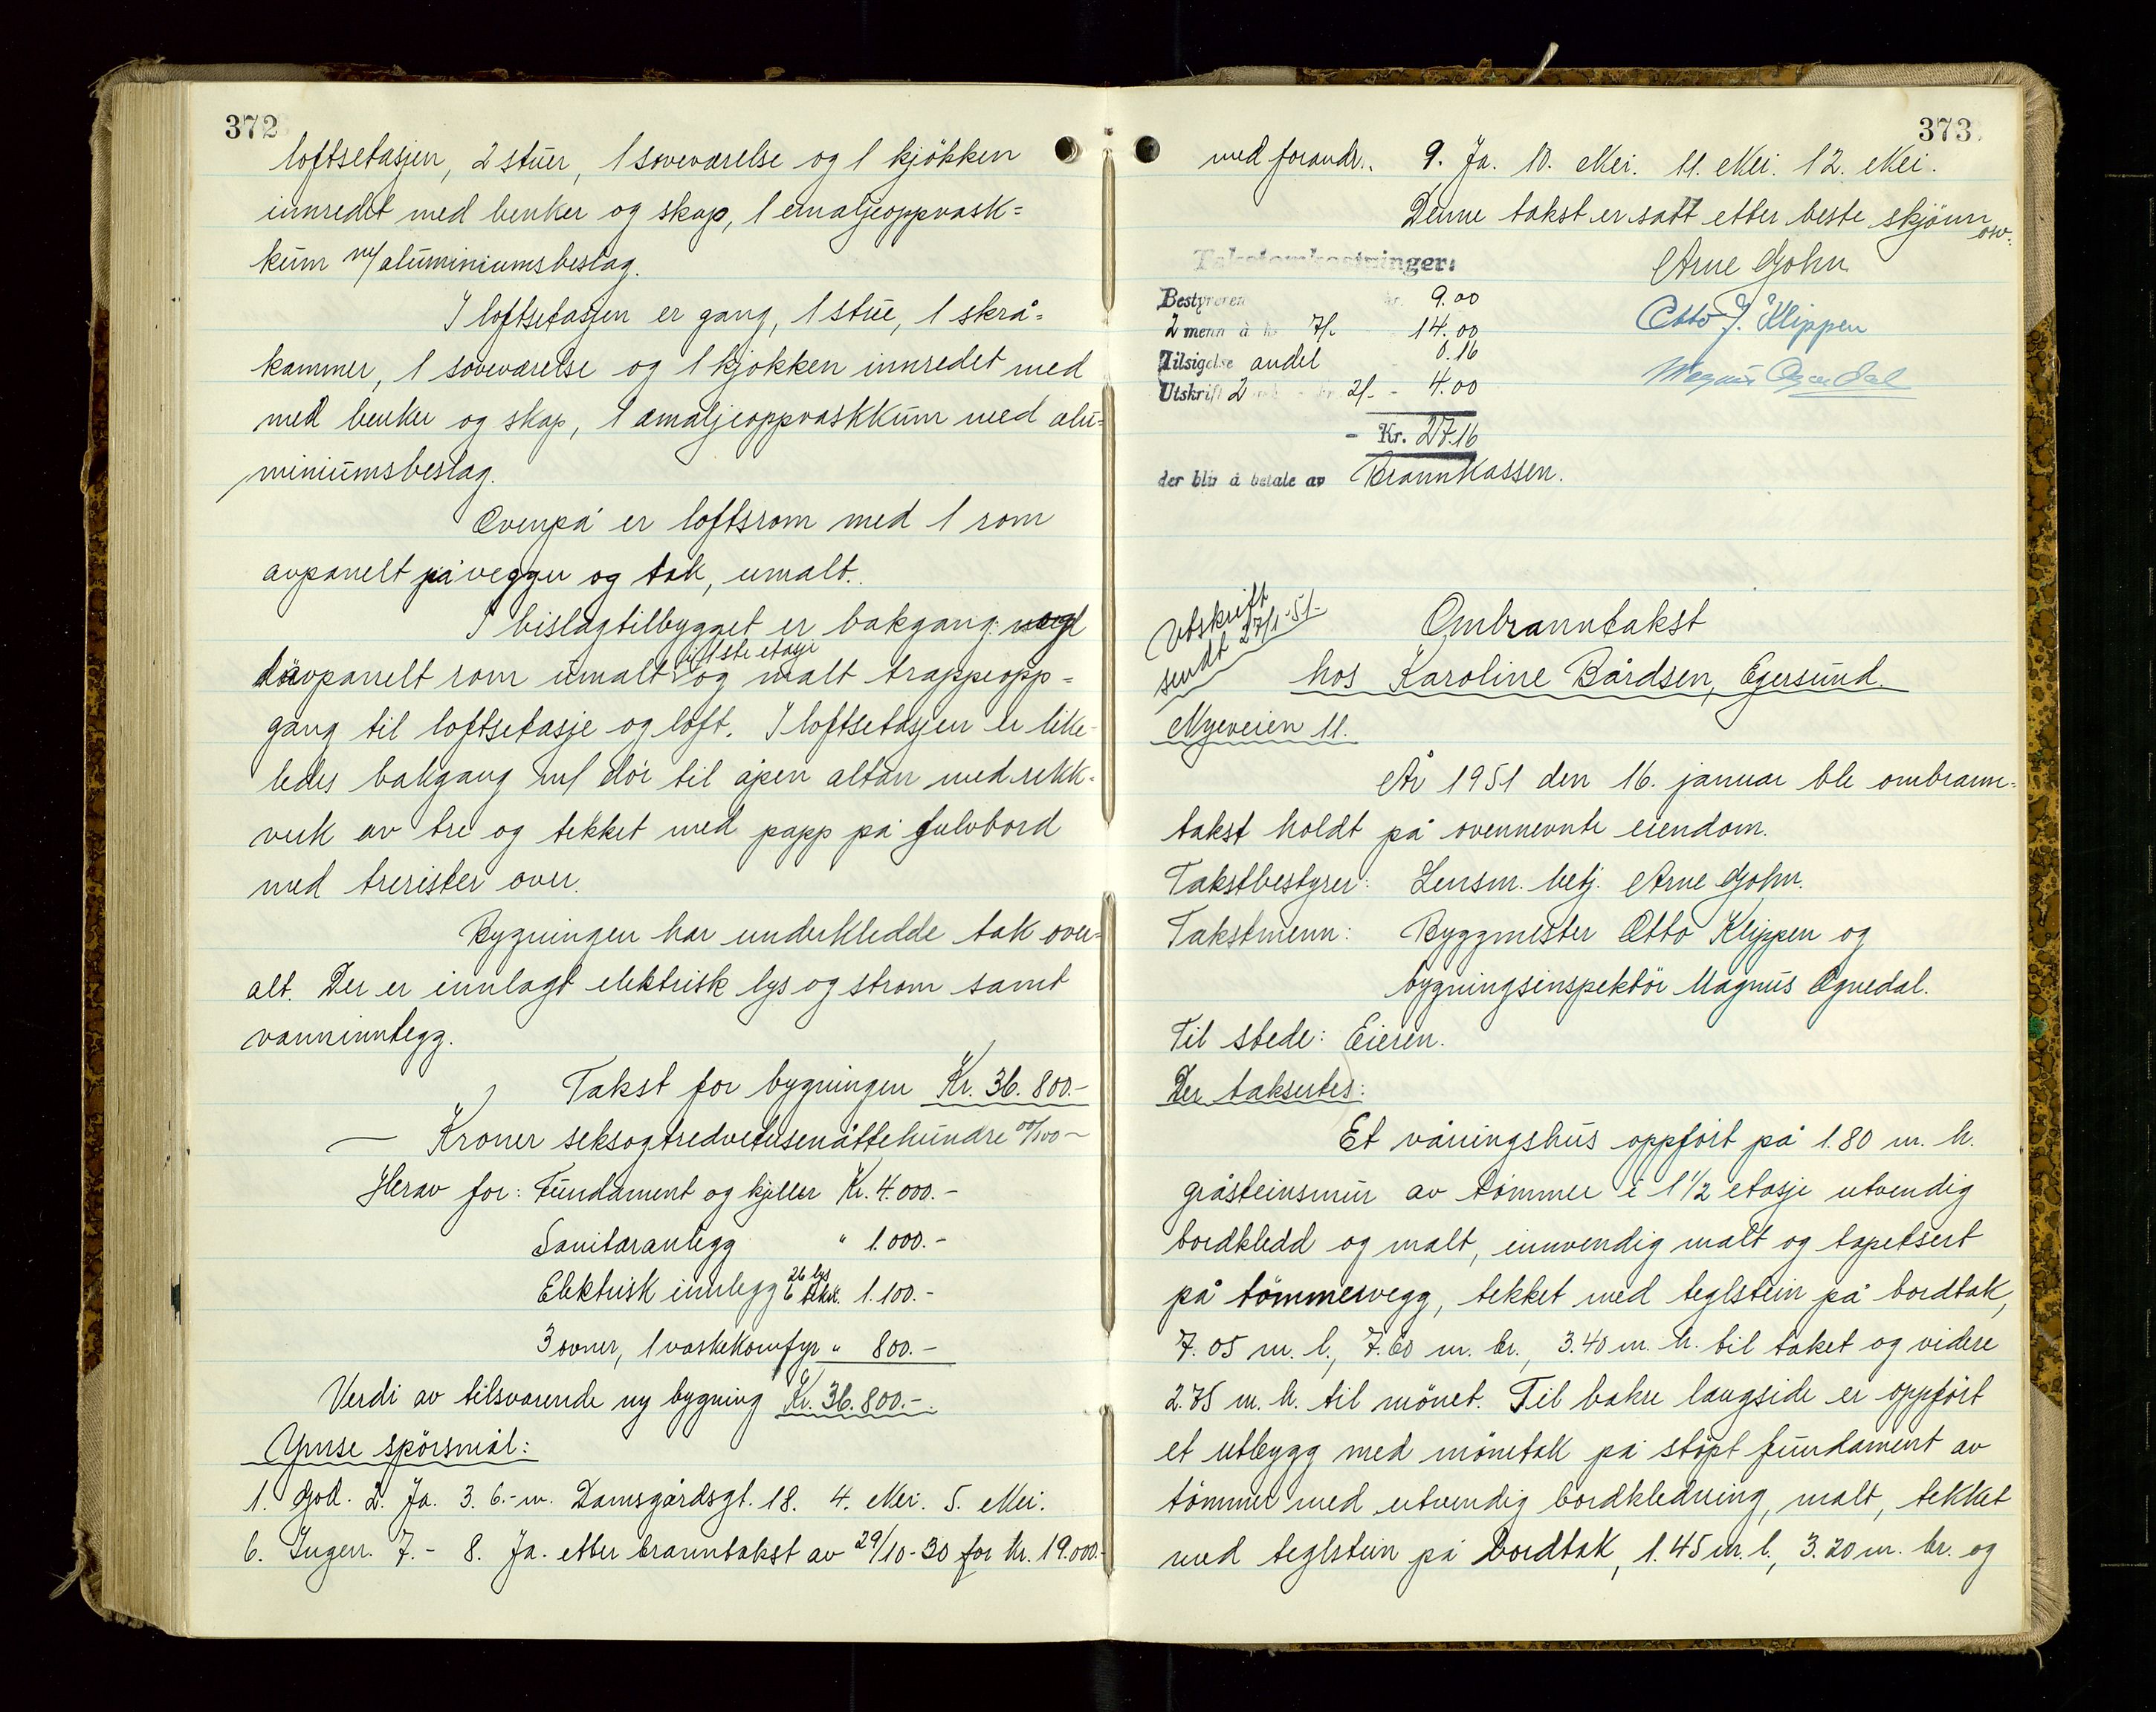 372
loftsetasjen, 2 stuer, 1 soveværelse og 1 kjökken
innredet med benker og skap, 1 emaljeoppvask=
kum m/ aluminiumsbeslag.
I loftsetasjen er gang, 1 stue, 1 skrå=
kammer, 1 soveværelse og 1 kjökken innredet med
med benker og skap, 1 emaljeoppvaskkum med alu=
miniumsbeslag.
Ovenpå er loftsrom med 1 rom
avpanelt på vegger og tak, umalt.
I bislagtilbygget er bakgang
avpanelt rom umalt i 1ste etasje og malt trappeopp=
gang til loftsetasje og loft. I loftsetasjen er like=
ledes bakgang m/ dör til åpen altan med rekk=
verk av tre og tekket med papp på gulvbord
med trerister over.
Bygningen har underkledde tak over=
alt. Der er innlagt elektrisk lys og ström samt
vanninnlegg.
Takst for bygningen Kr. 36.800.-
— Kroner seksogtredvetusenåttehundre 00/100 -
Herav for: Fundament og kjeller Kr. 4.000.-
Sanitæranlegg " 1.000.-
Elektrisk innlegg 26 lys 6 stikk. 1.100.-
3 ovner, 1 vaskekomfyr " 800.-
Verdi av tilsvarende ny bygning Kr. 36.800.-.
Ymse spörsmål:
1. God. 2. Ja. 3. 6.- m. Damsgårdsgt. 18. 4. Nei. 5. Nei.
6. Ingen. 7. - 8. Ja. etter branntakst av 29/10-30 for kr. 19.000.-
373
med forandr.. 9. Ja. 10. Nei. 11. Nei. 12. Nei.
Denne takst er satt etter beste skjönn osv.
Takstomkostninger:
Arne Gjohn
Bestyreren kr. 9.00
Otto J. Klippen
2 menn à kr 7/- 14.00
Tilsigelse andel 0.16
Magnus Ognedal
Utskrift 2 2/- - 4.00
- Kr. 27.16
der blir å betale av Brannkassen.
Utskrift
sendt 27/1-51-
Ombranntakst
hos Karoline Bårdsen, Egersund.
Nyeveien 11.
År 1951 den 16. januar ble ombrann=
takst holdt på ovennevnte eiendom.
Takstbestyrer: Lensm. betj. Arne Gjohn.
Takstmenn: Byggmester Otto Klippen og
bygningsinspektör Magnus Ognedal.
Til stede: Eieren.
Der taksertes:
Et våningshus oppfört på 1.80 m. h.
gråsteinsmur av tömmer i 1 1/2 etasje utvendig
bordkledd og malt, innvendig malt og tapetsert
på tömmervegg, tekket med teglstein på bordtak,
7.05 m. l., 7.60 m. br., 3.40 m. h. til taket og videre
2.75 m. h. til mönet. Til bakre langside er oppfört
et utbygg med mönetak på stöpt fundament av
tömmer med utvendig bordkledning, malt, tekket
med teglstein på bordtak, 1.45 m. l., 3.20 m. br. og